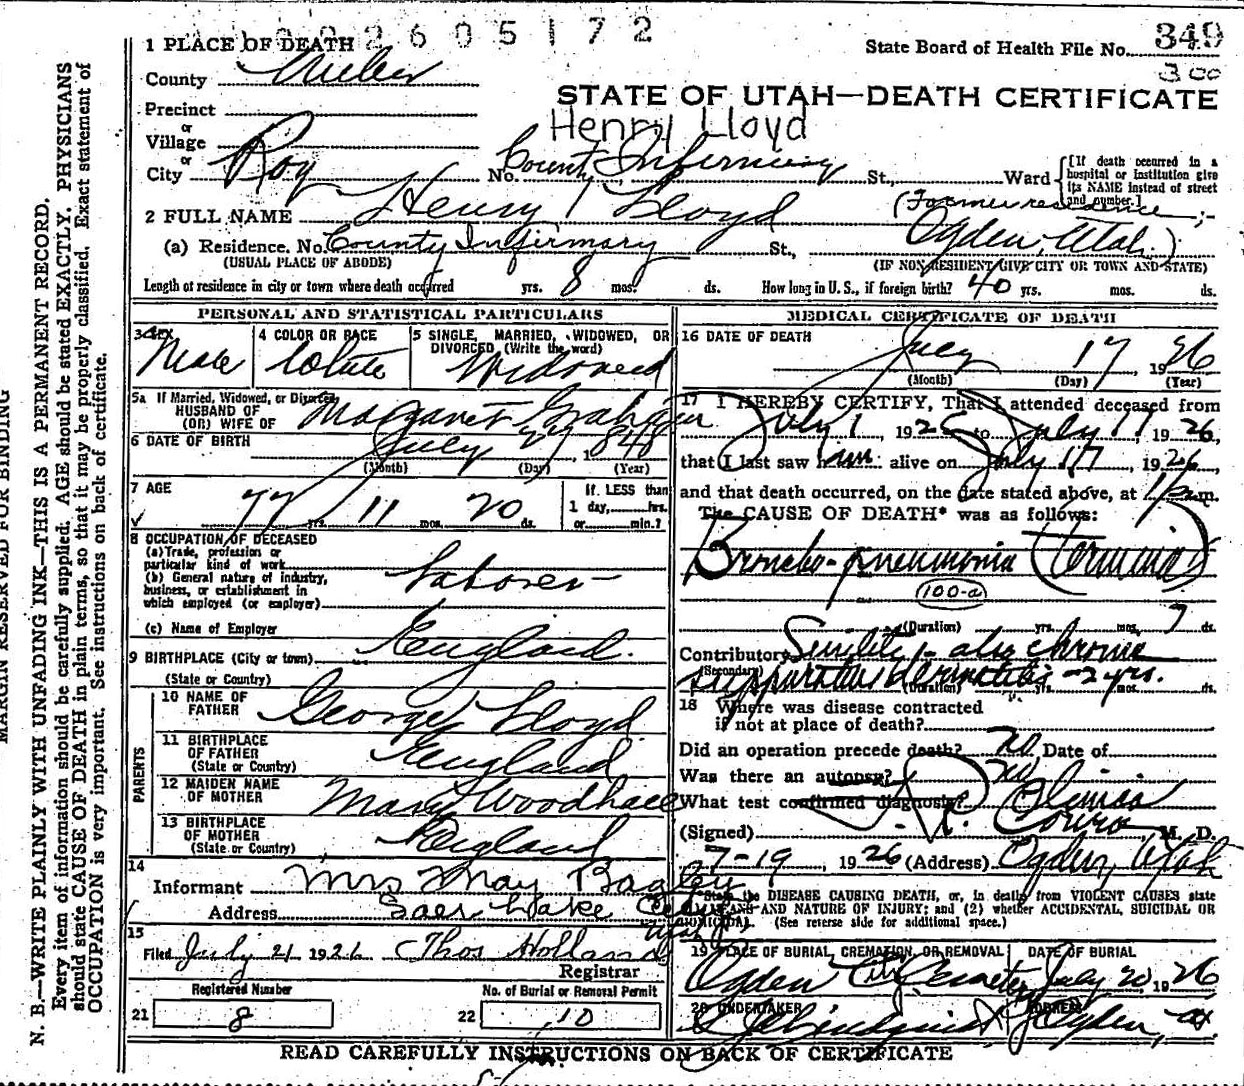 2605172
State Board of Health File No. 349
300
STATE OF UTAH—DEATH CERTIFICATE
Henry Lloyd
1 PLACE OF DEATH
County Weber
Precinct
or
Village
or
City Roy No. County Infirmary St., Ward
[If death occurred in a
hospital or institution give
its NAME instead of street
and number.]
2 FULL NAME Henry Lloyd
(Former residence
(a) Residence. No. County Infirmary St., Ogden, Utah.)
(USUAL PLACE OF ABODE)
(IF NON-RESIDENT GIVE CITY OR TOWN AND STATE)
Length of residence in city or town where death occurred yrs. 8 mos. ds. How long in U. S., if foreign birth? 40 yrs. mos. ds.
PERSONAL AND STATISTICAL PARTICULARS
3 SEX Male
4 COLOR OR RACE White
5 SINGLE, MARRIED, WIDOWED, OR
DIVORCED (Write the word)
Widowed
5a If Married, Widowed, or Divorced
HUSBAND OF
(OR) WIFE OF Margaret
6 DATE OF BIRTH July 27 1848
(Month) (Day) (Year)
7 AGE 77 yrs. 11 mos. 20 ds.
If LESS than
1 day, hrs.
or min.?
8 OCCUPATION OF DECEASED
(a) Trade, profession or
particular kind of work
(b) General nature of industry,
business, or establishment in
which employed (or employer)
Laborer
(c) Name of Employer
9 BIRTHPLACE (City or town) England.
(State or Country)
PARENTS
10 NAME OF
FATHER George Lloyd
11 BIRTHPLACE
OF FATHER England
(State or Country)
12 MAIDEN NAME
OF MOTHER Mary Woodhall
13 BIRTHPLACE
OF MOTHER England
(State or Country)
14
Informant Mrs May Bagley
Address Salt Lake City
Utah
15
Filed July 21 1926 Thos Holland
Registrar
Registered Number
21 8
No. of Burial or Removal Permit
22 10
MEDICAL CERTIFICATE OF DEATH
16 DATE OF DEATH
July 17, 1926
(Month) (Day) (Year)
17 I HEREBY CERTIFY, That I attended deceased from
July 1, 1926, to July 17, 1926,
that I last saw him alive on July 17, 1926,
and that death occurred, on the date stated above, at m.
The CAUSE OF DEATH* was as follows:
Broncho-pneumonia (terminal)
(100-a)
(Duration) yrs. mos. 7 ds.
Contributory Senility - also chronic
(Secondary) suppurative dermatitis - 2 yrs.
(Duration) yrs. mos. ds.
18 Where was disease contracted
if not at place of death?
Did an operation precede death? no Date of
Was there an autopsy? no
What test confirmed diagnosis? Clinical
(Signed) M. D.
7-19, 1926 (Address) Ogden, Utah
*State the DISEASE CAUSING DEATH, or, in deaths from VIOLENT CAUSES state
MEANS AND NATURE OF INJURY; and (2) whether ACCIDENTAL, SUICIDAL OR
HOMICIDAL. (See reverse side for additional space.)
19 PLACE OF BURIAL, CREMATION, OR REMOVAL
Ogden City Cemetery
DATE OF BURIAL
July 20, 1926
20 UNDERTAKER
ADDRESS
Ogden, Ut
READ CAREFULLY INSTRUCTIONS ON BACK OF CERTIFICATE
MARGIN RESERVED FOR BINDING
N. B.—WRITE PLAINLY WITH UNFADING INK—THIS IS A PERMANENT RECORD.
Every item of information should be carefully supplied. AGE should be stated EXACTLY. PHYSICIANS
should state CAUSE OF DEATH in plain terms, so that it may be properly classified. Exact statement of
OCCUPATION is very important. See instructions on back of certificate.